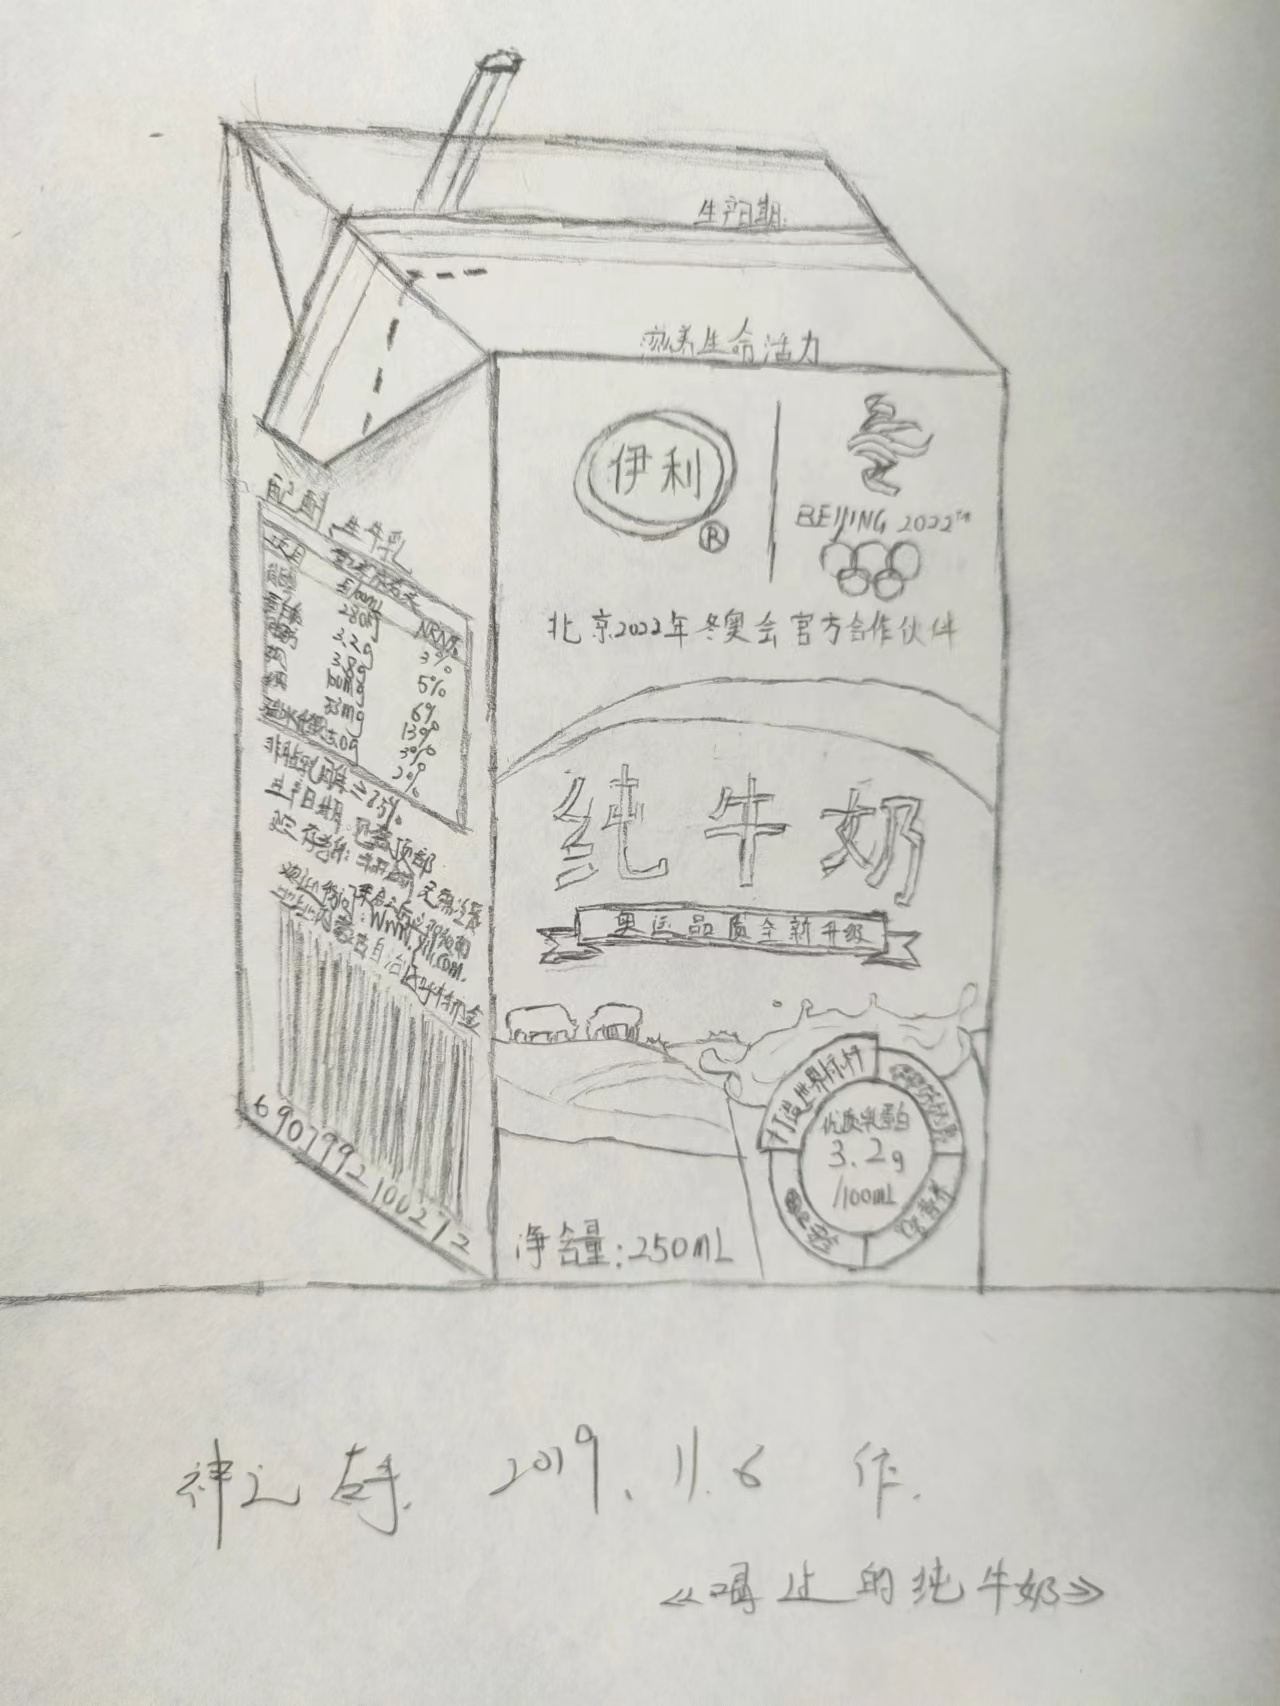 生产日期:
滋养生命活力
伊利
®
BEIJING 2022™
北京2022年冬奥会官方合作伙伴
纯牛奶
奥运品质全新升级
打造世界标杆
优质乳蛋白
3.2g
/100mL
净含量:250mL
配料 生牛乳
项目 NRV%
280kJ 3%
3.2g 5%
3.8g 6%
100mg 13%
53mg 3%
5.0g 2%
非脂乳固体≥8.5%
生产日期:见盒顶部
无需冷藏
www.yili.com.
内蒙古自治区呼和浩特金
6907992100272
神之右手. 2019.11.6 作.
《喝过的纯牛奶》